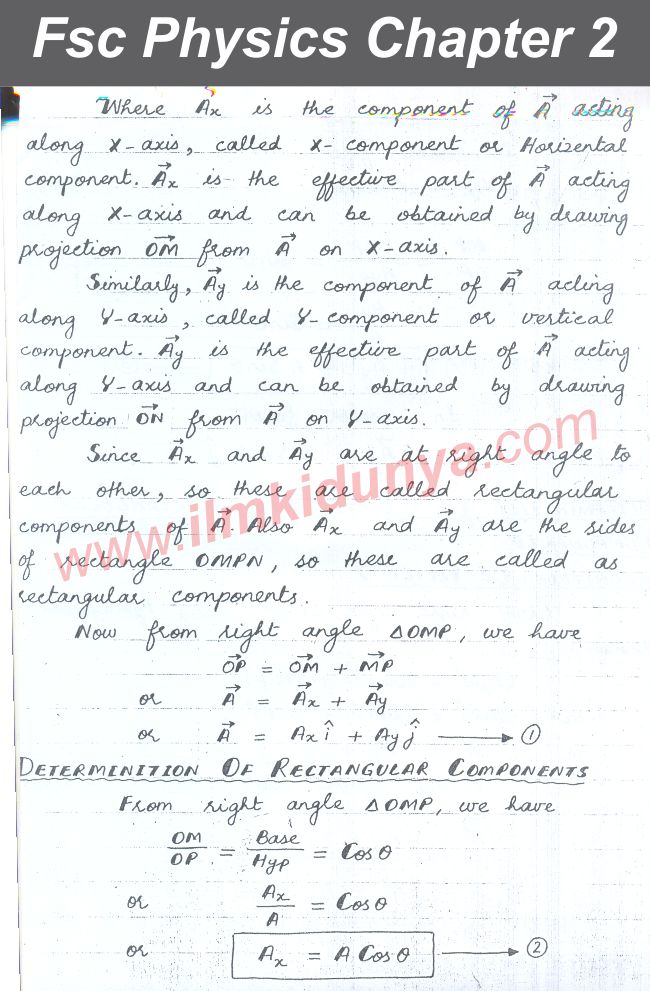 Fsc Physics Chapter 2
Where A⃗x is the component of A⃗ acting
along X-axis, called X-component or Horizental
component. A⃗x is the effective part of A⃗ acting
along X-axis and can be obtained by drawing
projection O⃗M⃗ from A⃗ on X-axis.
Similarly, A⃗y is the component of A⃗ acting
along Y-axis, called Y-component or vertical
component. A⃗y is the effective part of A⃗ acting
along Y-axis and can be obtained by drawing
projection O⃗N⃗ from A⃗ on Y-axis.
Since A⃗x and A⃗y are at right angle to
each other, so these are called rectangular
components of A⃗. Also A⃗x and A⃗y are the sides
of rectangle OMPN, so these are called as
rectangular components.
www.ilmkidunya.com
Now from right angle ΔOMP, we have
O⃗P⃗ = O⃗M⃗ + M⃗P⃗
or A⃗ = A⃗x + A⃗y
or A⃗ = Ax î + Ay ĵ ⟶ ①
DETERMINITION OF RECTANGULAR COMPONENTS
From right angle ΔOMP, we have
OM/OP = Base/Hyp = Cosθ
or Ax/A = Cosθ
or Ax = A Cosθ ⟶ ②